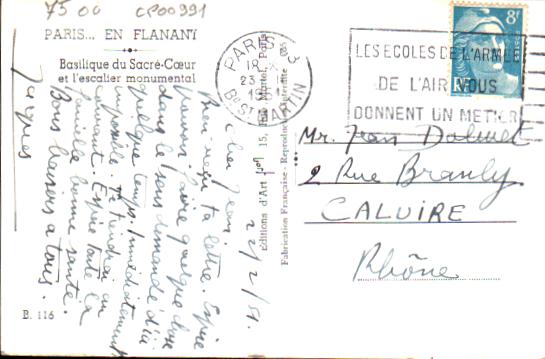 75 00 CP00991
PARIS... EN FLANANT
Basilique du Sacré-Cœur
et l'escalier monumental
Cher Jean
22/2/51.
Bien reçu ta lettre. Espère
pouvoir faire quelque chose
dans le sens demandé d'ici
quelque temps. Immédiatement
impossible. Te tiendrai au
courant. Espère toute la
famille bonne santé.
Bons baisers à tous.
Jacques
B. 116
Editions d'Art 15, Rue Martel, Paris
Fabrication Française - Reproduction Interdite
PARIS 3
18
23
1951
Bd ST MARTIN
LES ECOLES DE L'ARMEE
DE L'AIR VOUS
DONNENT UN METIER
8F
RF
Mr. Jean
2 Rue Branly
CALUIRE
Rhône